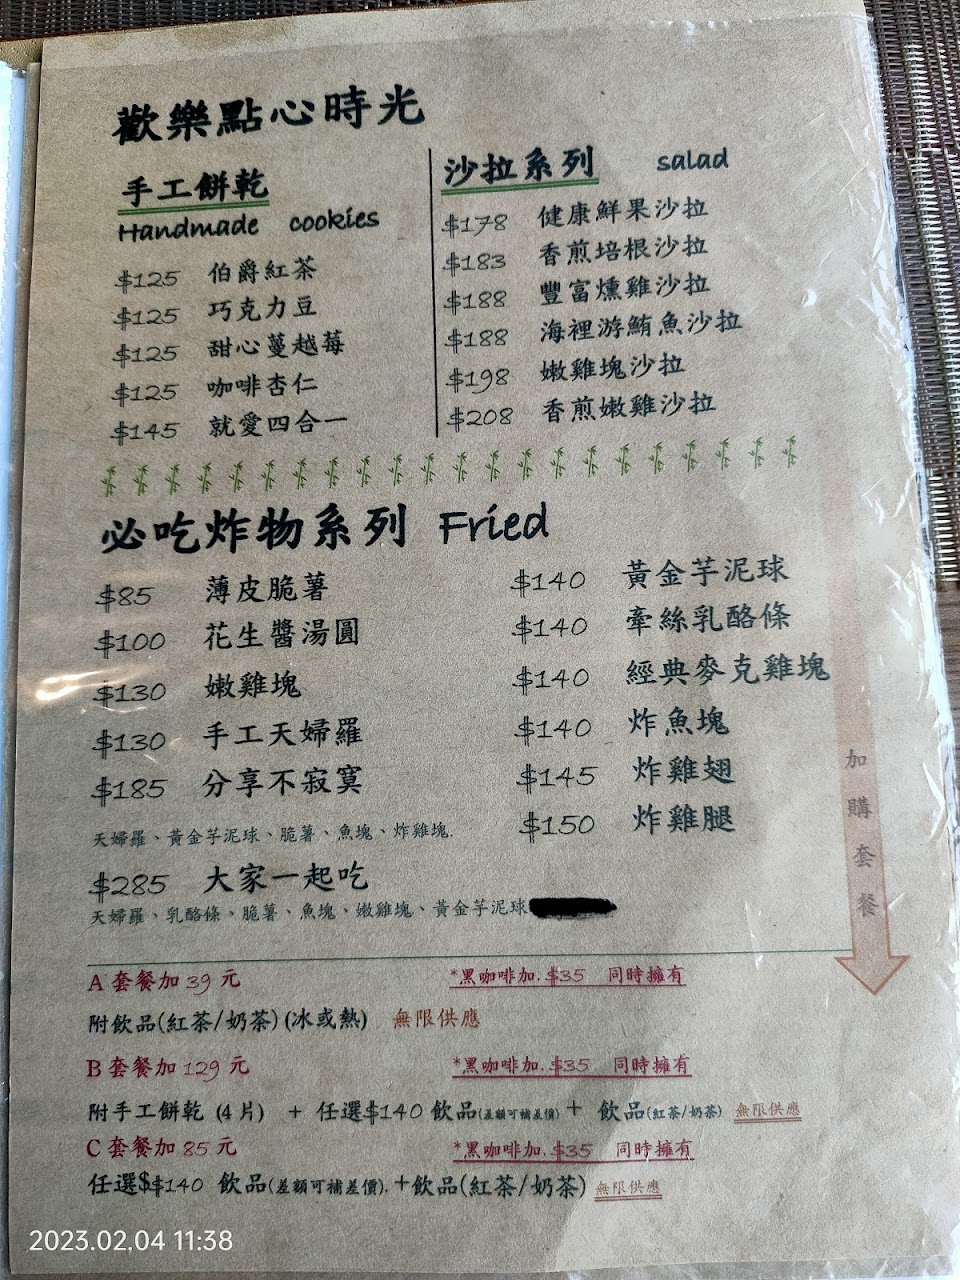 歡樂點心時光
手工餅乾
Handmade cookies
$125 伯爵紅茶
$125 巧克力豆
$125 甜心蔓越莓
$125 咖啡杏仁
$145 就愛四合一
沙拉系列 salad
$178 健康鮮果沙拉
$183 香煎培根沙拉
$188 豐富燻雞沙拉
$188 海裡游鮪魚沙拉
$198 嫩雞塊沙拉
$208 香煎嫩雞沙拉
必吃炸物系列 Fried
$85 薄皮脆薯
$100 花生醬湯圓
$130 嫩雞塊
$130 手工天婦羅
$185 分享不寂寞
天婦羅、黃金芋泥球、脆薯、魚塊、炸雞塊.
$285 大家一起吃
天婦羅、乳酪條、脆薯、魚塊、嫩雞塊、黃金芋泥球
$140 黃金芋泥球
$140 牽絲乳酪條
$140 經典麥克雞塊
$140 炸魚塊
$145 炸雞翅
$150 炸雞腿
加購套餐
A 套餐加 39 元 *黑咖啡加.$35 同時擁有
附飲品(紅茶/奶茶)(冰或熱) 無限供應
B 套餐加 129 元 *黑咖啡加.$35 同時擁有
附手工餅乾 (4 片) + 任選$140 飲品(差額可補差價) + 飲品(紅茶/奶茶) 無限供應
C 套餐加 85 元 *黑咖啡加.$35 同時擁有
任選$$140 飲品(差額可補差價). +飲品(紅茶/奶茶) 無限供應
2023.02.04 11:38